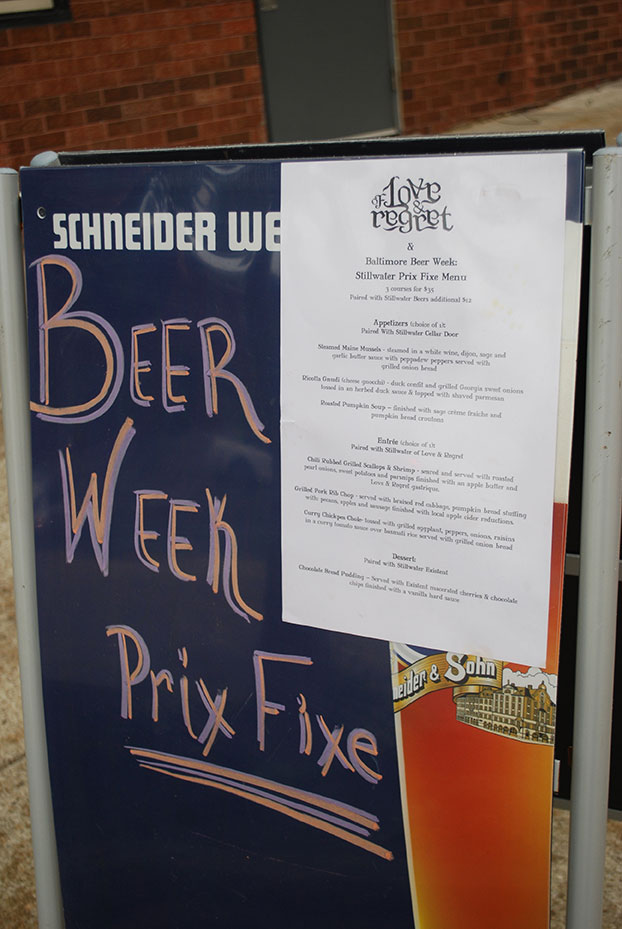 SCHNEIDER WE
Beer
Week
Prix Fixe
OF Love
&
regret
&
Baltimore Beer Week:
Stillwater Prix Fixe Menu
3 courses for $35
Paired with Stillwater Beers additional $12
Appetizers (choice of 1):
Paired With Stillwater Cellar Door
Steamed Maine Mussels - steamed in a white wine, dijon, sage and
garlic butter sauce with peppadew peppers served with
grilled onion bread
Ricotta Gnudi (cheese gnocchi) - duck confit and grilled Georgia sweet onions
tossed in an herbed duck sauce & topped with shaved parmesan
Roasted Pumpkin Soup – finished with sage crème fraiche and
pumpkin bread croutons
Entrée (choice of 1):
Paired with Stillwater of Love & Regret
Chili Rubbed Grilled Scallops & Shrimp - seared and served with roasted
pearl onions, sweet potatoes and parsnips finished with an apple butter and
Love & Regret gastrique.
Grilled Pork Rib Chop - served with braised red cabbage, pumpkin bread stuffing
with pecans, apples and sausage finished with local apple cider reductions.
Curry Chickpea Choke tossed with grilled eggplant, peppers, onions, raisins
in a curry tomato sauce over basmati rice served with grilled onion bread
Dessert:
Paired with Stillwater Existent
Chocolate Bread Pudding – Served with Existent macerated cherries & chocolate
chips finished with a vanilla hard sauce
neider & Sohn